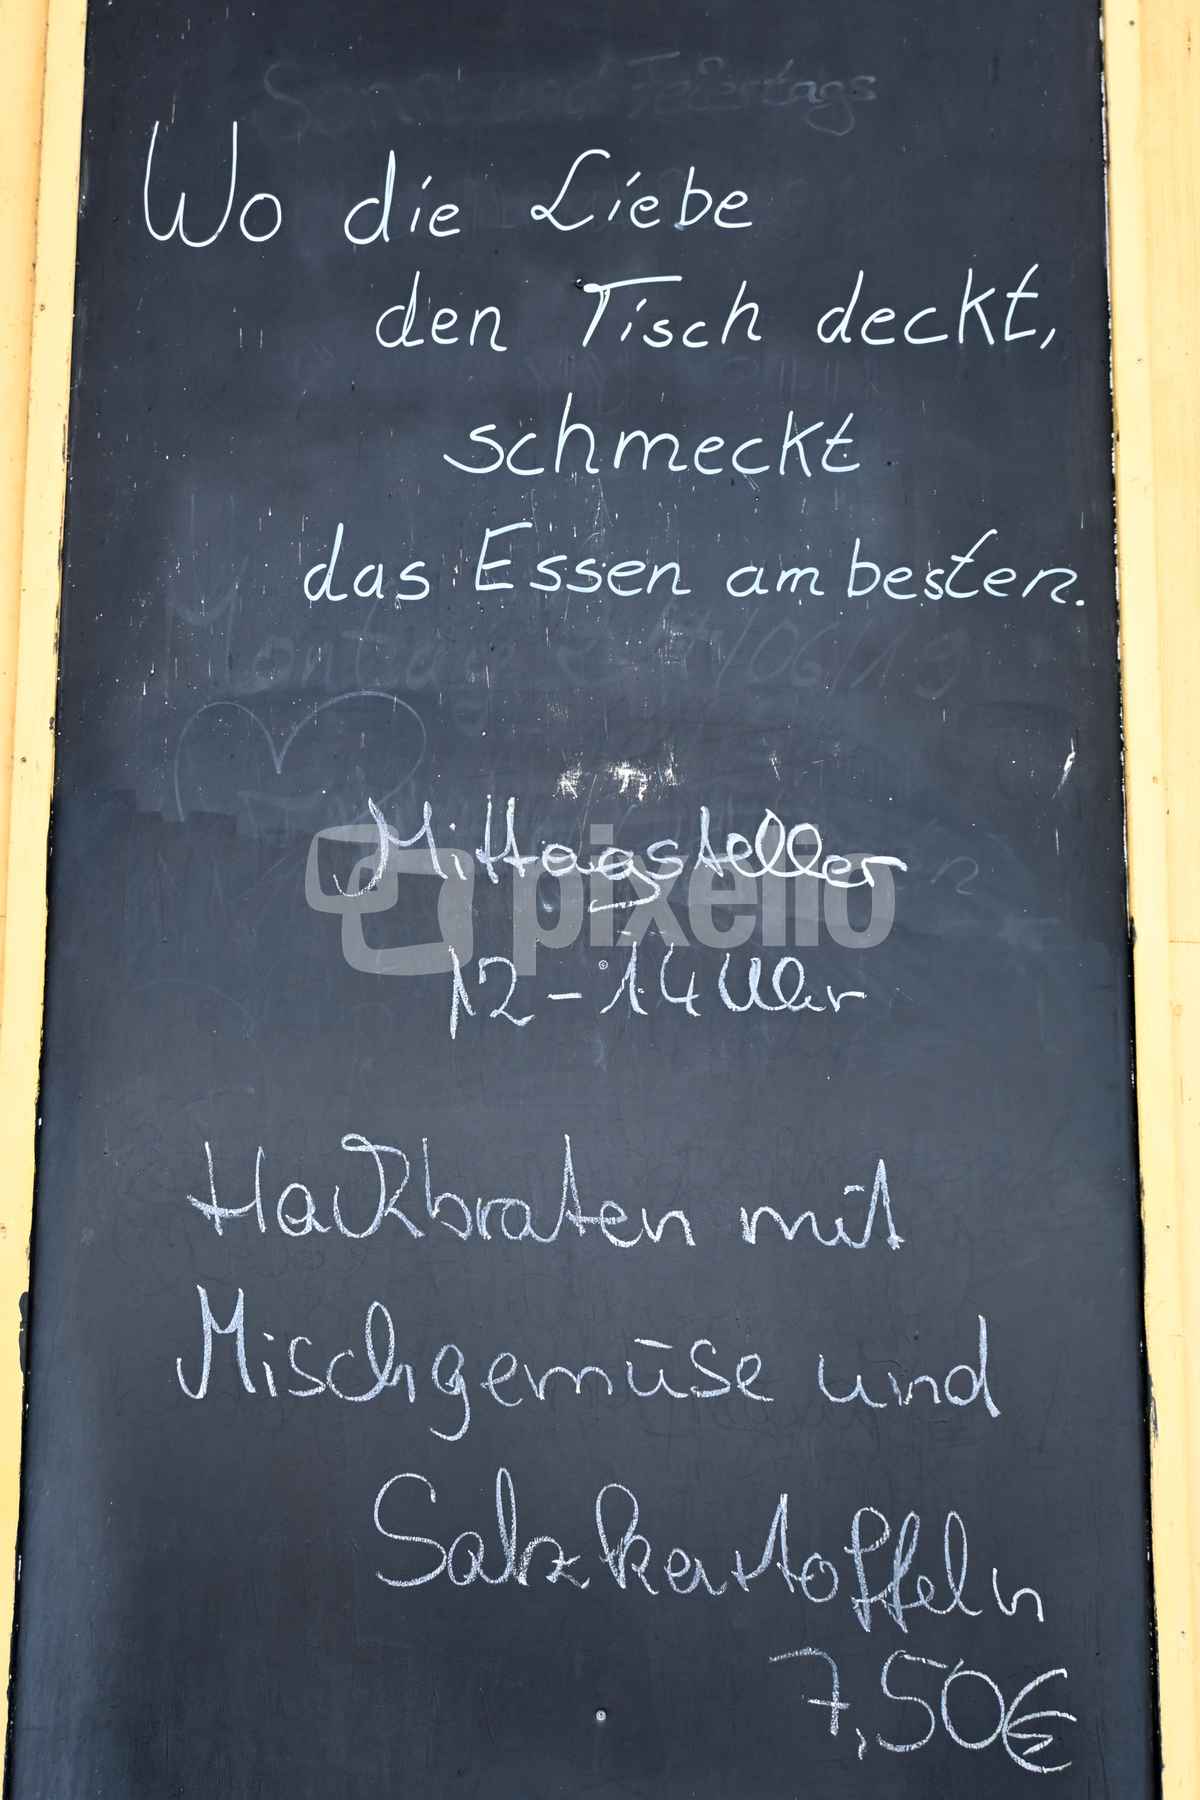 und Feiertags
Wo die Liebe
den Tisch deckt,
schmeckt
das Essen am besten.
Montag
Mittagsteller
pixelio
12-14 Uhr
Hackbraten mit
Mischgemüse und
Salzkartoffeln
7,50€